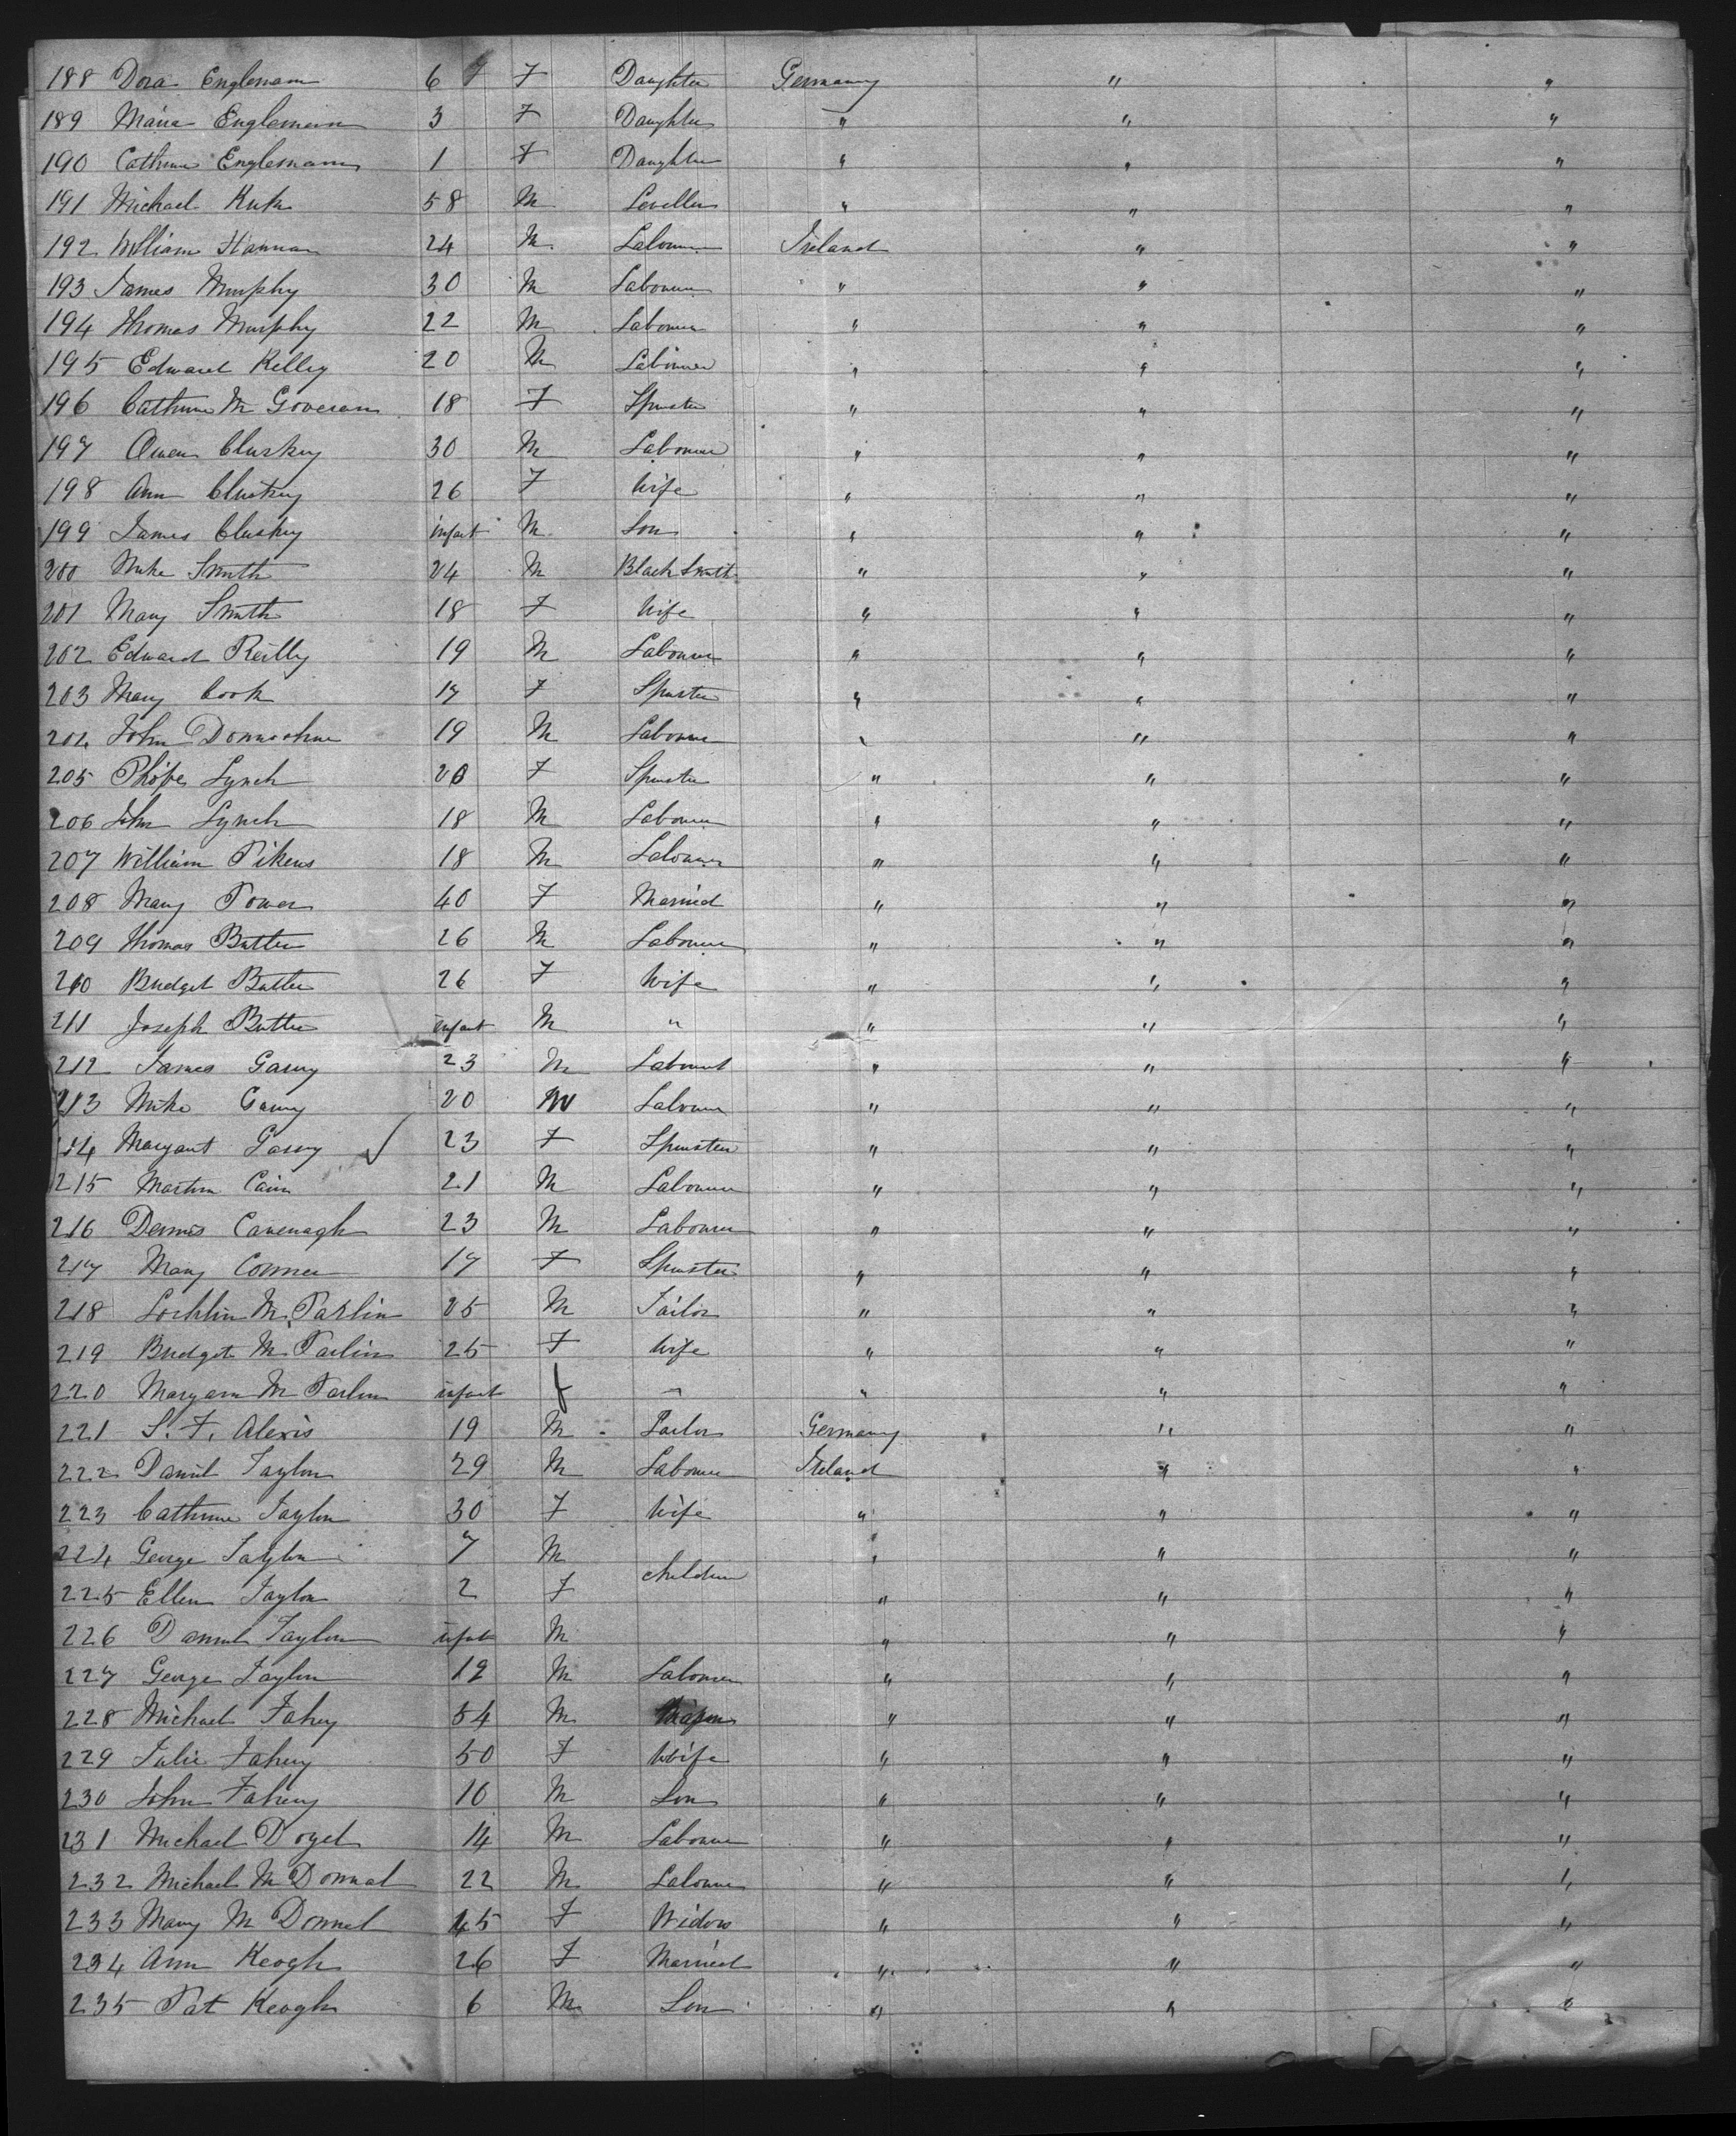 188 Dora Englemann 6 F Daughter Germany " "
189 Maria Englemann 3 F Daughter " " "
190 Cathrine Englemann 1 F Daughter " " "
191 Michael 58 M " " "
192 William Hannan 24 M Labourer Ireland " "
193 James Murphy 30 M Labourer " " "
194 Thomas Murphy 22 M Labourer " " "
195 Edward Kelley 20 M Labourer " " "
196 Cathrine Mc Goveran 18 F Spinster " " "
197 Owen Cluskey 30 M Labourer " " "
198 Ann Cluskey 26 F Wife " " "
199 James Cluskey infant M Son " " "
200 Mike Smith 24 M Black Smith " " "
201 Mary Smith 18 F Wife " " "
202 Edward Reilly 19 M Labourer " " "
203 Mary Cook 17 F Spinster " " "
204 John Donnoohue 19 M Labourer " " "
205 Lynch 20 F Spinster " " "
206 John Lynch 18 M Labourer " " "
207 William Pikens 18 M Labourer " " "
208 Mary Power 40 F Married " " "
209 Thomas Butler 26 M Labourer " " "
210 Bridget Butler 26 F Wife " " "
211 Joseph Butler infant M " " " "
212 James Garey 23 M Labourer " " "
213 Mike Garey 20 M Labourer " " "
214 Margaret Garey 23 F Spinster " " "
215 Martin Cain 21 M Labourer " " "
216 Dennis Cavenagh 23 M Labourer " " "
217 Mary Conner 17 F Spinster " " "
218 Lochlin Mc Parlin 25 M Tailor " " "
219 Bridget Mc Parlin 25 F Wife " " "
220 Maryann Mc Parlin infant f " " " "
221 S. F. Alexis 19 M Germany " "
222 Daniel Taylor 29 M Labourer Ireland " "
223 Cathrine Taylor 30 F Wife " " "
224 George Taylor 7 M " " "
children
225 Ellen Taylor 2 F " " "
226 Daniel Taylor infant M " " "
227 George Taylor 19 M Labourer " " "
228 Michael Fahey 54 M " " "
229 Julie Fahey 50 F Wife " " "
230 John Fahey 10 M Son " " "
231 Michael 14 M Labourer " " "
232 Michael Mc Donnal 22 M Labourer " " "
233 Mary Mc Donnel 45 F Widow " " "
234 Ann Keogh 26 F Married " " "
235 Pat Keogh 6 M Son " " "